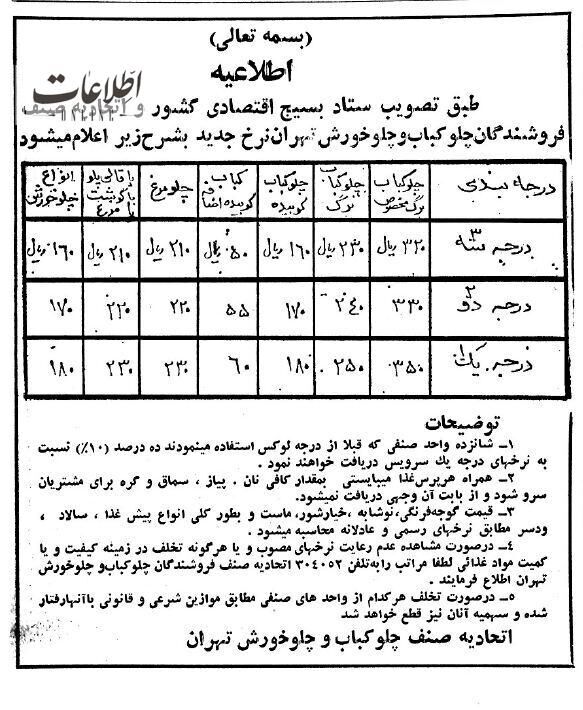 (بسمه تعالی)
اطلاعیه
اطلاعات
طبق تصویب ستاد بسیج اقتصادی کشور و اتحادیه صنف
فروشندگان چلوکباب و چلوخورش تهران نرخ جدید بشرح زیر اعلام میشود
درجه بندی | چلوکباب برگ مخصوص | چلوکباب برگ | چلوکباب کوبیده | کباب کوبیده اضافی | چلومرغ | باقالی پلو با گوشت یا مرغ | انواع چلوخورش
درجه سه ۳ | ۳۲۰ ریال | ۲۳۰ ریال | ۱۶۰ ریال | ۵۰ ریال | ۲۱۰ ریال | ۲۱۰ ریال | ۱۶۰ ریال
درجه دو ۲ | ۳۳۰ | ۲۴۰ | ۱۷۰ | ۵۵ | ۲۲۰ | ۲۲۰ | ۱۷۰
درجه یک ۱ | ۳۵۰ | ۲۵۰ | ۱۸۰ | ۶۰ | ۲۳۰ | ۲۳۰ | ۱۸۰
توضیحات
۱ــ شانزده واحد صنفی که قبلا از درجه لوکس استفاده مینمودند ده درصد (۱۰٪) نسبت
به نرخهای درجه یك سرویس دریافت خواهند نمود .
۲ــ همراه هرپرس غذا میبایستی بمقدار کافی نان ، پیاز ، سماق و کره برای مشتریان
سرو شود و از بابت آن وجهی دریافت نمیشود.
۳ــ قیمت گوجه‌فرنگی، نوشابه ، خیارشور، ماست و بطور کلی انواع پیش غذا ، سالاد ،
ودسر مطابق نرخهای رسمی و عادلانه محاسبه میشود .
۴ــ درصورت مشاهده عدم رعایت نرخهای مصوب و یا هرگونه تخلف در زمینه کیفیت و یا
کمیت مواد غذائی لطفا مراتب را به‌تلفن ۳۰۴۰۵۲ اتحادیه صنف فروشندگان چلوکباب و چلوخورش
تهران اطلاع فرمایند .
۵ــ درصورت تخلف هرکدام از واحد های صنفی مطابق موازین شرعی و قانونی باآنهارفتار
شده و سهمیه آنان نیز قطع خواهد شد
اتحادیه صنف چلوکباب و چلوخورش تهران